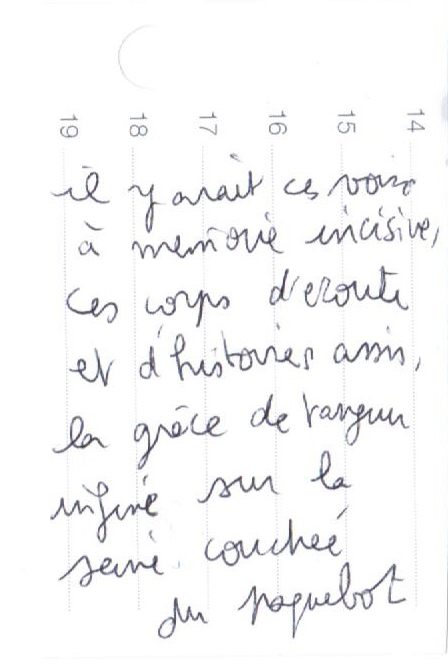 19 18 17 16 15 14
il y avait ces voix
à mémoire incisive,
ces corps d'écoute
et d'histoires assis,
la grâce de
sur la
couchée
du paquebot